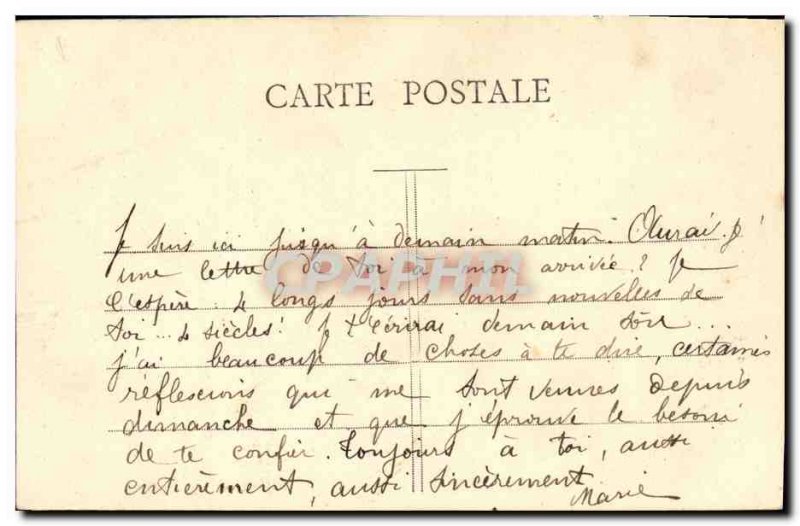 CARTE POSTALE
Je suis ici jusqu'à demain matin. Aurai-j'
une lettre de toi à mon arrivée ? Je
l'espère. 4 longs jours sans nouvelles de
toi... 4 siècles ! Je t'écrirai demain soir...
j'ai beaucoup de choses à te dire, certaines
réflexions qui me sont venues depuis
dimanche et que j'éprouve le besoin
de te confier. Toujours à toi, aussi
entièrement, aussi sincèrement
Marie
CPAPHIL